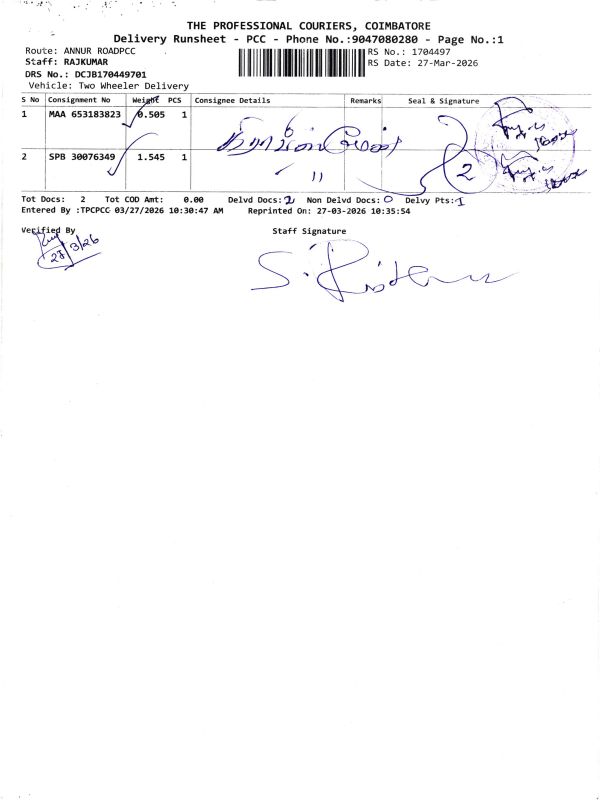 THE PROFESSIONAL COURIERS, COIMBATORE
Delivery Runsheet - PCC - Phone No.:9047080280 - Page No.:1
Route: ANNUR ROADPCC RS No.: 1704497
Staff: RAJKUMAR RS Date: 27-Mar-2026
DRS No.: DCJB170449701
Vehicle: Two Wheeler Delivery
S No Consignment No Weight PCS Consignee Details Remarks Seal & Signature
1 MAA 653183823 0.505 1
2 SPB 30076349 1.545 1 11 2
Tot Docs: 2 Tot COD Amt: 0.00 Delvd Docs: 2 Non Delvd Docs: 0 Delvy Pts: 1
Entered By :TPCPCC 03/27/2026 10:30:47 AM Reprinted On: 27-03-2026 10:35:54
Verified By Staff Signature